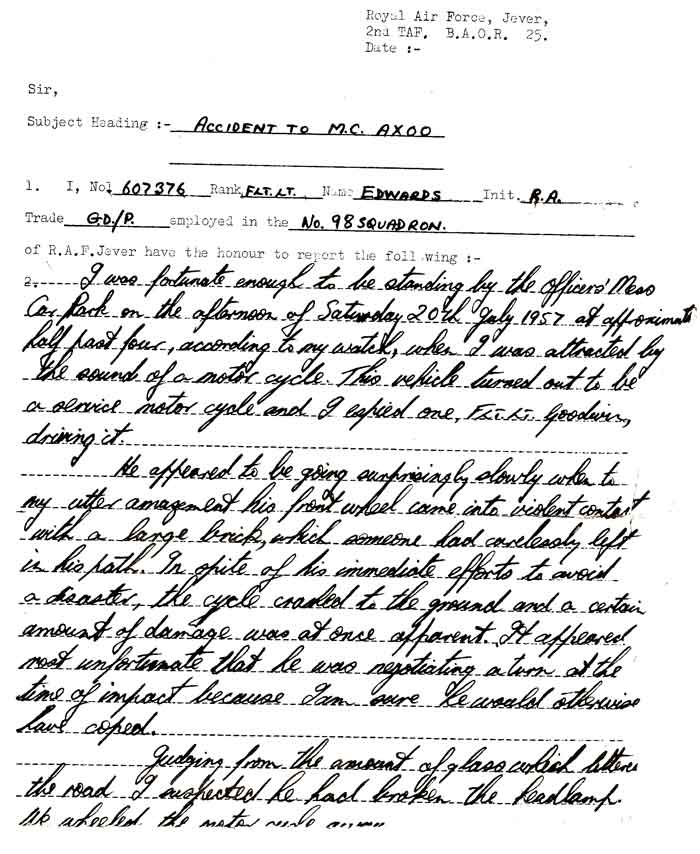 Royal Air Force, Jever,
2nd TAF. B.A.O.R. 25.
Date :-
Sir,
Subject Heading :- ACCIDENT TO M.C. AX00
1. I, No. 607376 Rank FLT.LT. Name EDWARDS Init. R.A.
Trade G.D./P. employed in the No. 98 SQUADRON.
of R.A.F.Jever have the honour to report the foll wing :-
2. I was fortunate enough to be standing by the Officers' Mess
Car Park on the afternoon of Saturday 20th July 1957 at approximate
half past four, according to my watch, when I was attracted by
the sound of a motor cycle. This vehicle turned out to be
a service motor cycle and I espied one, FLT.LT. Goodwin,
driving it.
He appeared to be going surprisingly slowly when to
my utter amazement his front wheel came into violent contact
with a large brick, which someone had carelessly left
in his path. In spite of his immediate efforts to avoid
a disaster, the cycle crashed to the ground and a certain
amount of damage was at once apparent. It appeared
most unfortunate that he was negotiating a turn at the
time of impact because I am sure he would otherwise
have coped.
Judging from the amount of glass which littere
the road I suspected he had broken the headlamp.
He wheeled the motor cycle away